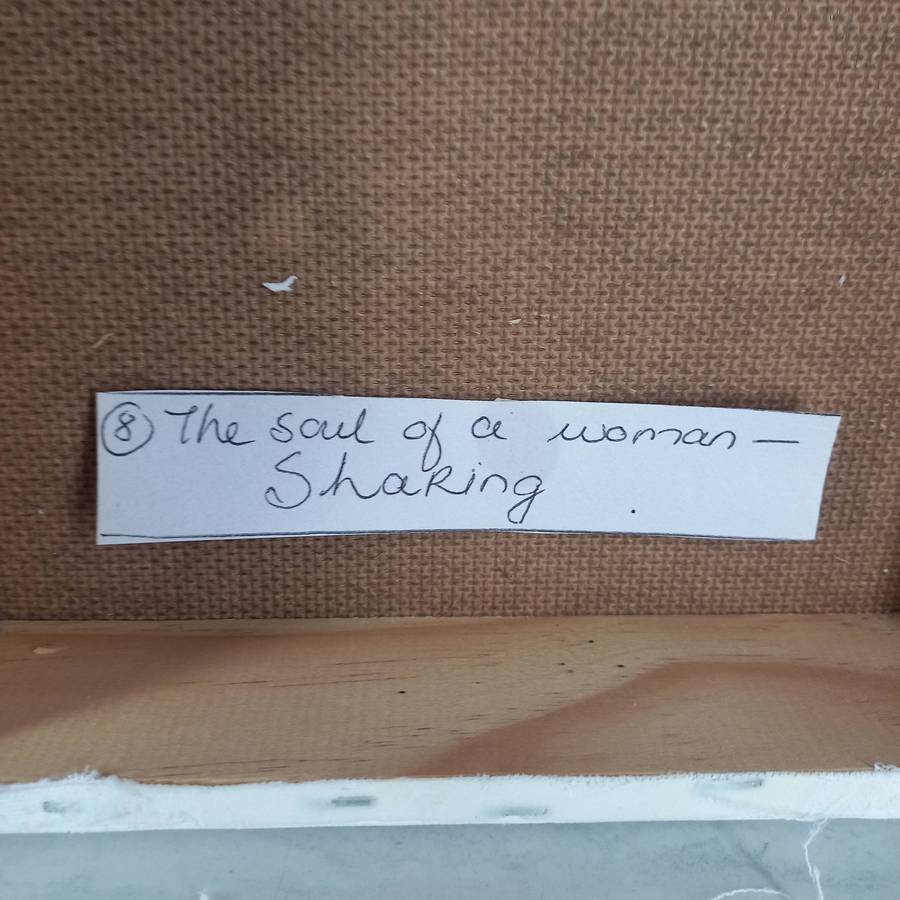 ⑧ The soul of a woman —
ShaRing .